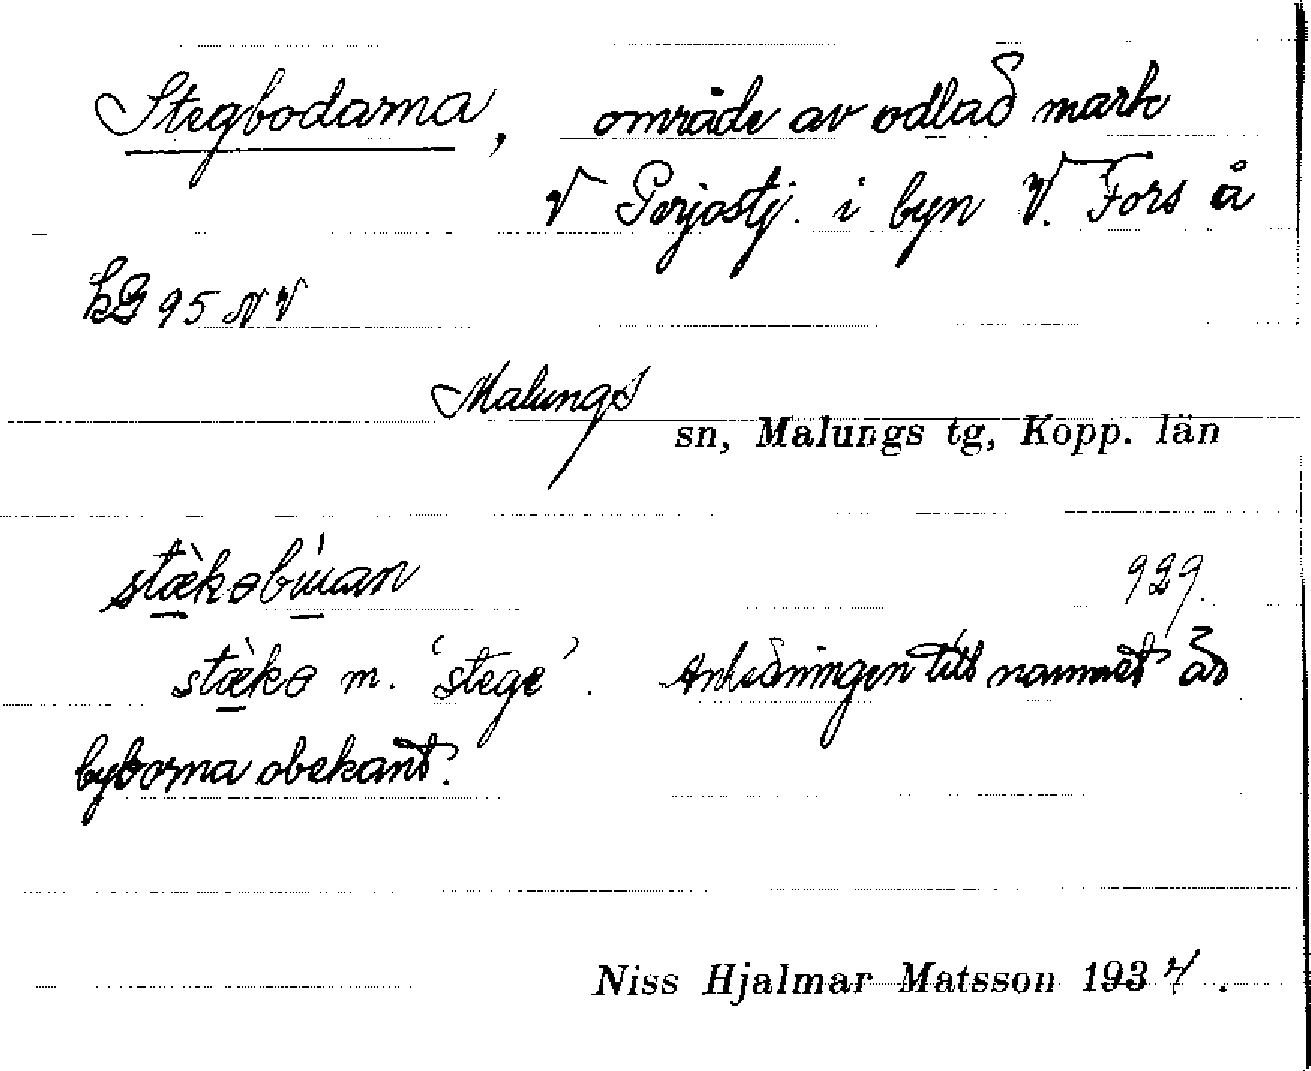 Stegbodarna, område av odlad mark
V Perjostj. i byn V. Fors å
hB 95 NV
Malungs
sn, Malungs tg, Kopp. län
stæ̀kəbúan 929.
stæ̀kə m. 'stege'. Anledningen till namnet är
byborna obekant.
Niss Hjalmar Matsson 1934.